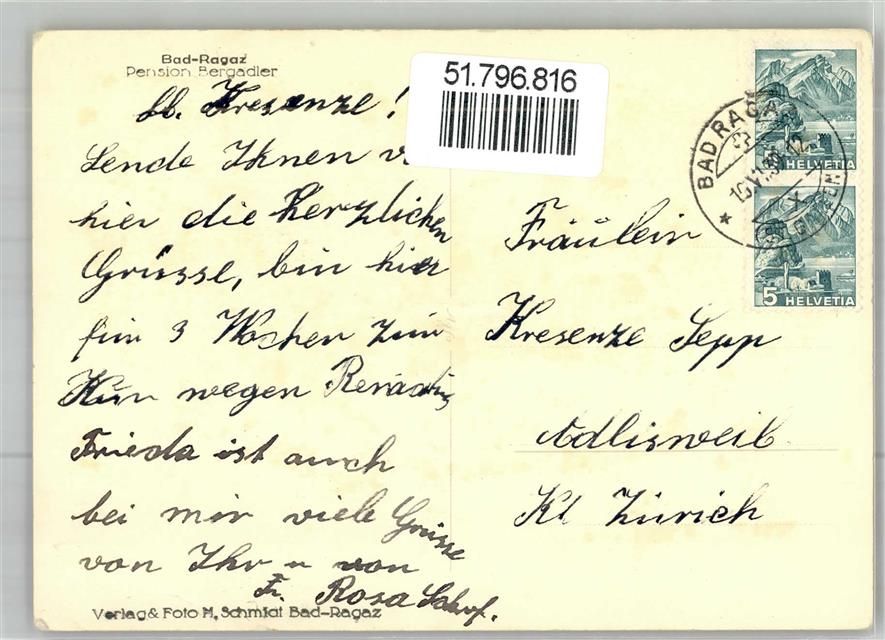 Bad-Ragaz
Pension Bergadler
51.796.816
lb. Kresenze!
Sende Ihnen
hier die herzlichen
Grüsse, bin hier
für 3 Wochen zur
Kur wegen
Frieda ist auch
bei mir viele Grüsse
von Ihr u von
Fr. Rosa
Verlag & Foto M. Schmidt Bad-Ragaz
BAD RAGAZ
HELVETIA
5 HELVETIA
Fräulein
Kresenze Sepp
Adlisweil
Kt Zürich